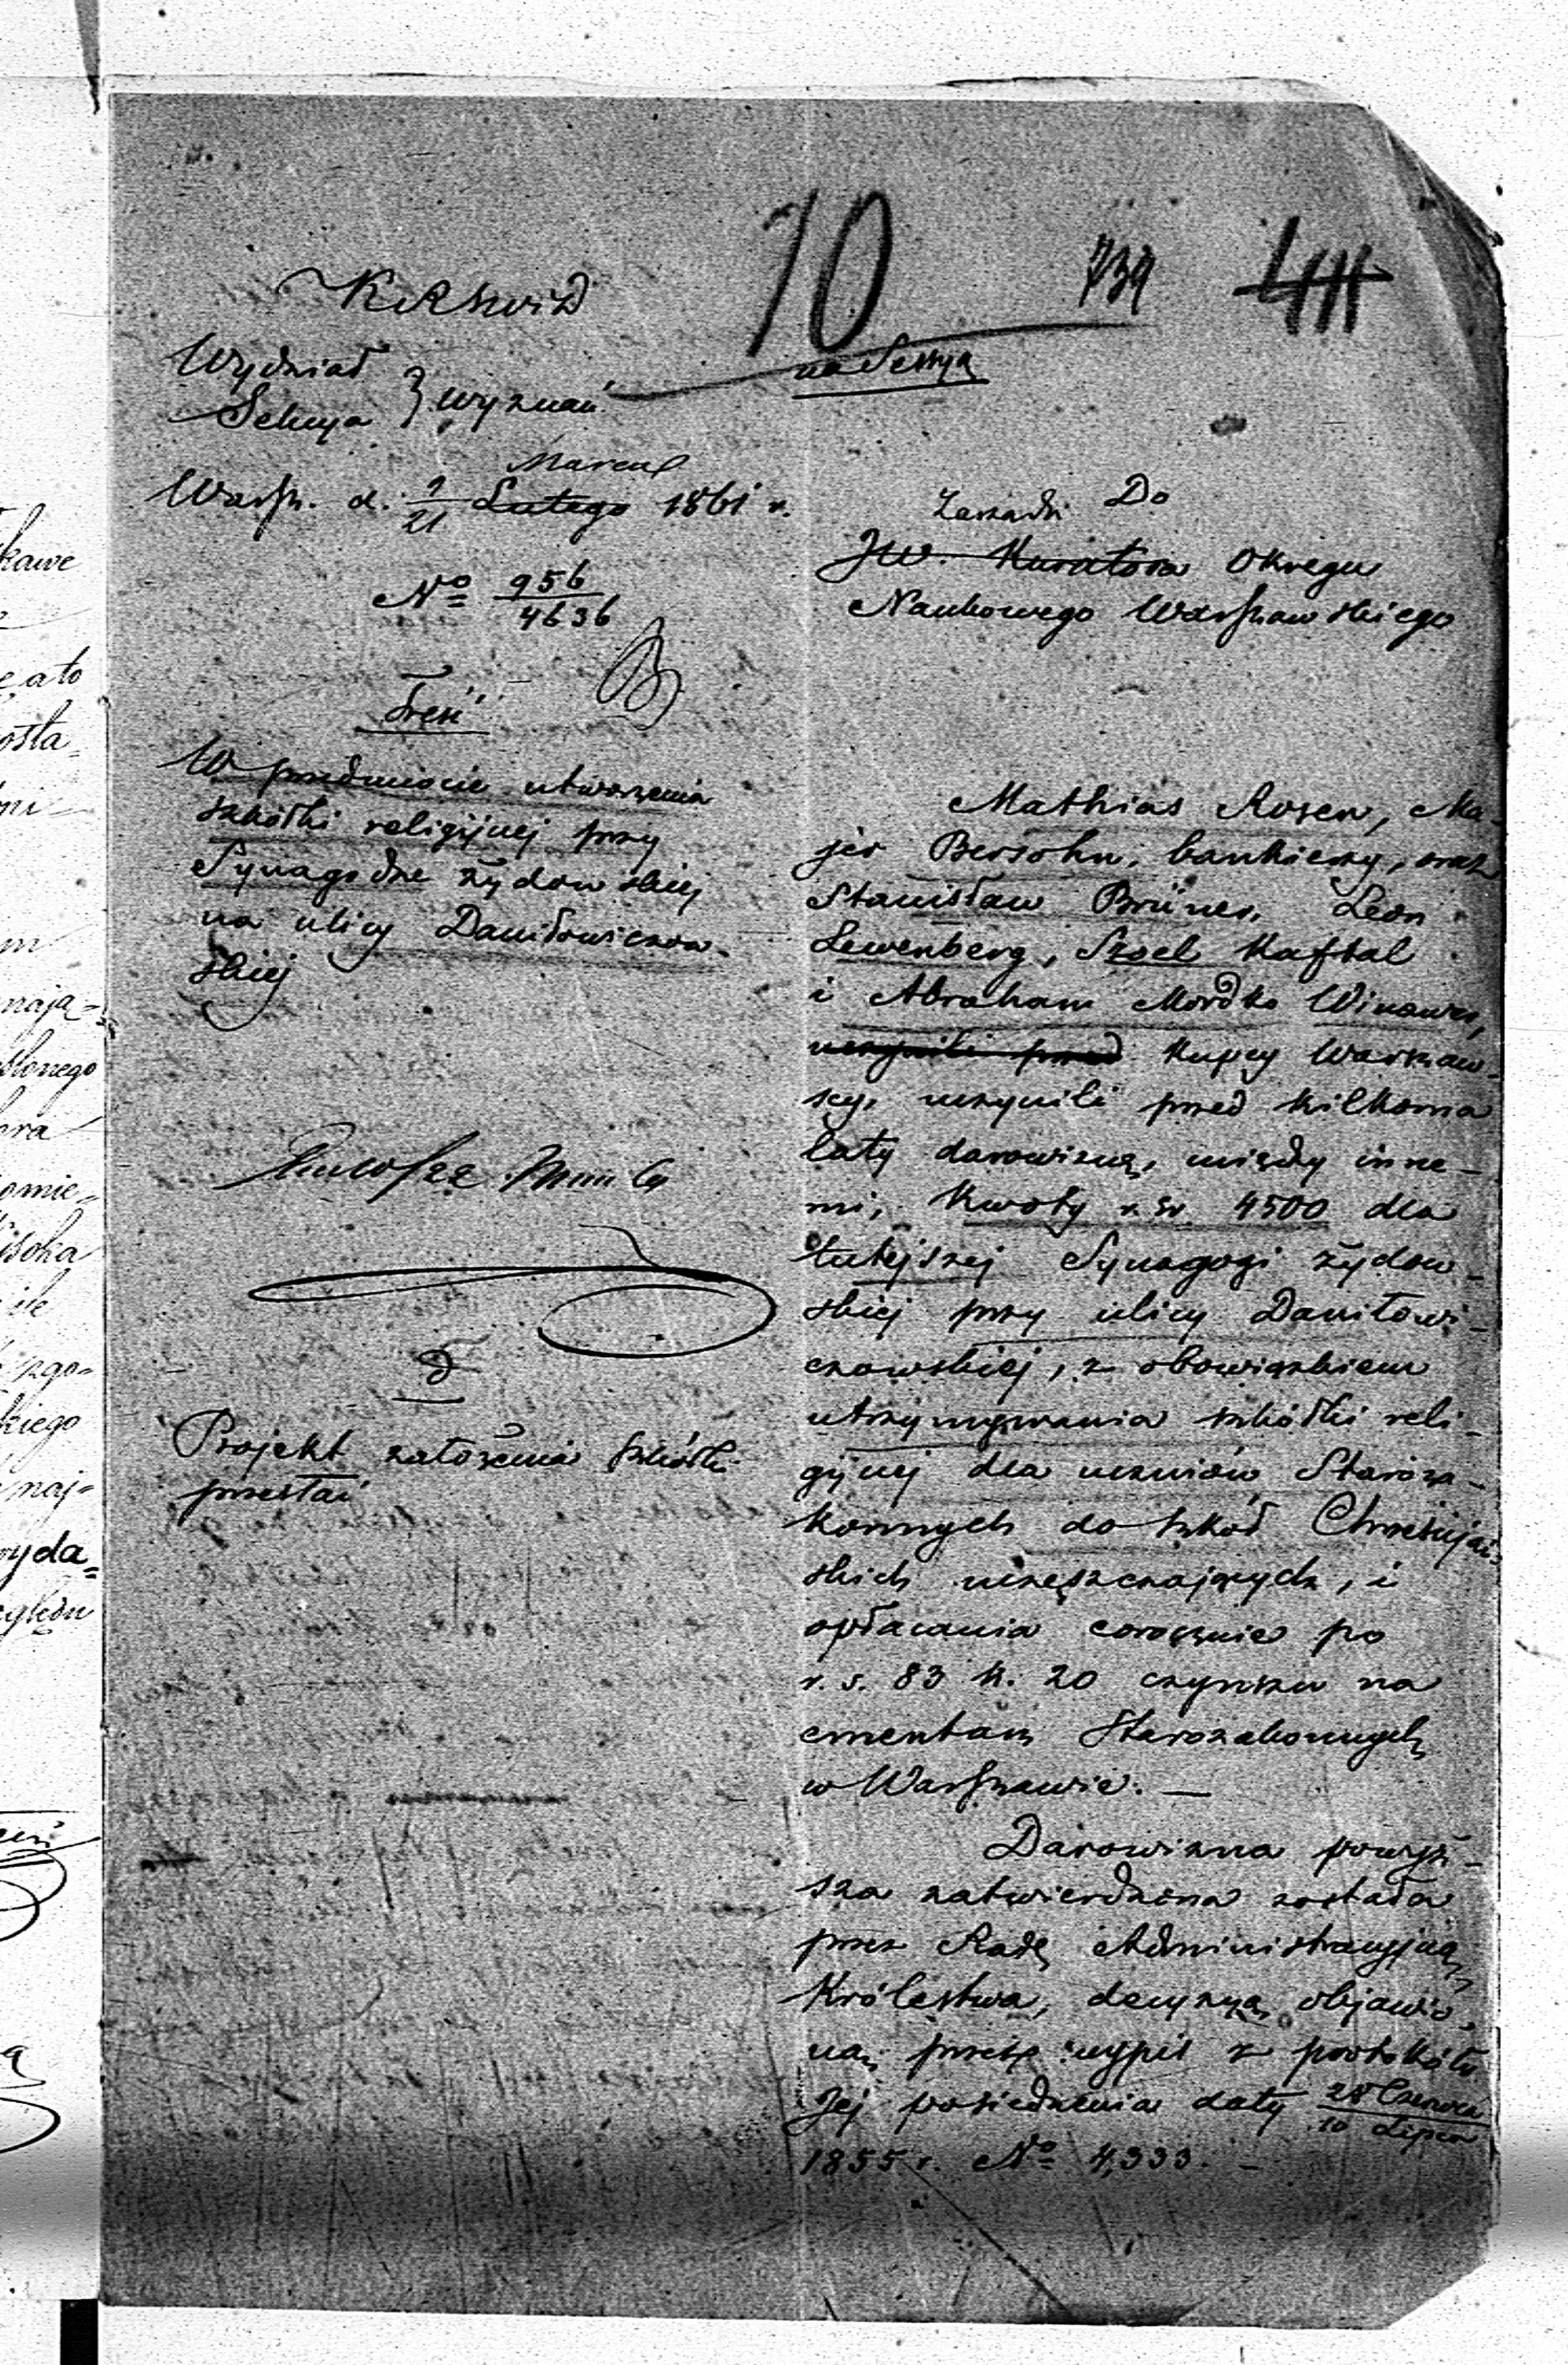 10
739
KRSWiD
na Sessyą
Wydział
Sekcya } Wyznań
Marca
Warsz. d. 9/21 Lutego 1861 r.
No 956/4636
Treść
W przedmiocie utworzenia
szkółki religijnej przy
Synagodze żydowskiej
na ulicy Daniłowiczow-
skiej
Projekt założenia szkółki
przesłać
Do
JW. Kuratora Okręgu
Naukowego Warszawskiego
Mathias Rosen, Ma-
jer Bersohn, bankierzy, oraz
Stanisław Brüner, Leon
Lewenberg, Szoel Kaftal
i Abraham Mordko Winawer,
uczynili przed Kupcy Warszaw-
scy, uczynili przed kilkoma
laty darowiznę, między inne-
mi, Kwoty r. sr. 4500 dla
tutejszej Synagogi żydow-
skiej przy ulicy Daniłowi-
czowskiej, z obowiązkiem
utrzymywania szkółki reli-
gijnej dla uczniów Staroza-
konnych do szkół Chrześcijań-
skich uczęszczających, i
opłacania corocznie po
r. s. 83 k. 20 czynszu na
cmentarz Starozakonnych
w Warszawie. —
Darowizna powyż-
sza zatwierdzona została
przez Radę Administracyjną
Królestwa, decyzyą objawio-
ną przez wypis z protokółu
Jej posiedzenia daty 28 Czerwca/10 Lipca
1855 r. No 4,333. —